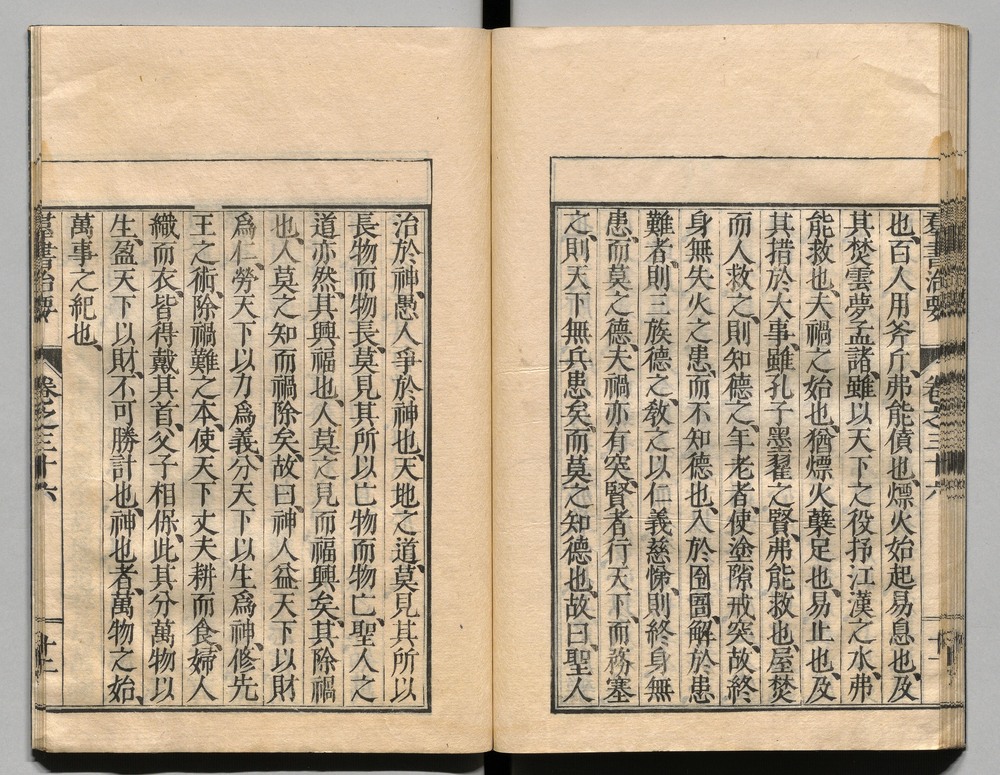 羣書治要 卷之三十六 十一
也、百人用斧斤、弗能僨也、熛火始起易息也、及
其焚雲夢孟諸、雖以天下之役抒江漢之水、弗
能救也、夫禍之始也、猶熛火蘖足也、易止也、及
其措於大事、雖孔子墨翟之賢、弗能救也、屋焚
而人救之、則知德之、年老者、使塗隙戒突、故終
身無失火之患、而不知德也、入於囹圄、解於患
難者、則三族德之、敎之以仁義慈悌、則終身無
患、而莫之德、夫禍亦有突、賢者行天下、而務塞
之、則天下無兵患矣、而莫之知德也、故曰、聖人
治於神、愚人爭於神也、天地之道、莫見其所以
長物而物長、莫見其所以亡物而物亡、聖人之
道亦然、其興福也、人莫之見而福興矣、其除禍
也、人莫之知而禍除矣、故曰、神人益天下以財
爲仁、勞天下以力爲義、分天下以生爲神、修先
王之術、除禍難之本、使天下丈夫耕而食、婦人
織而衣、皆得戴其首、父子相保、此其分萬物以
生、盈天下以財、不可勝計也、神也者、萬物之始、
萬事之紀也、
羣書治要 卷之三十六